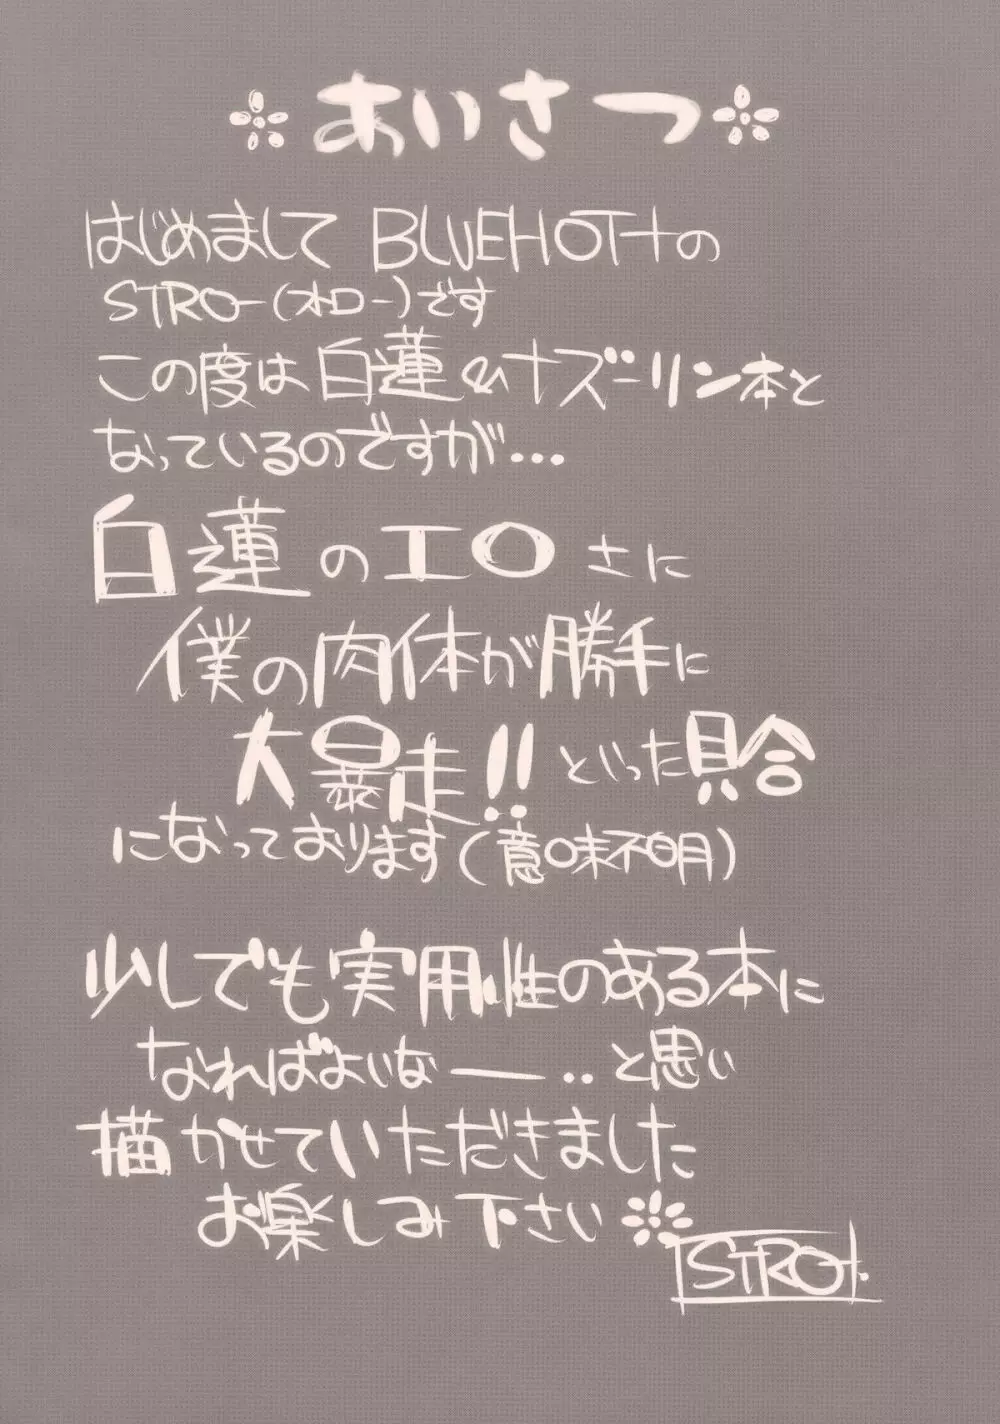 あいさつ
はじめまして BLUEHOT+の
STRO-(オロー)です
この度は白蓮&ナズーリン本と
なっているのですが...
白蓮のエロさに
僕の肉体が勝手に
大暴走!!といった具合
になっております(意味不明)
少しでも実用性のある本に
なればよいなー..と思い
描かせていただきました
お楽しみ下さい
STRO+.